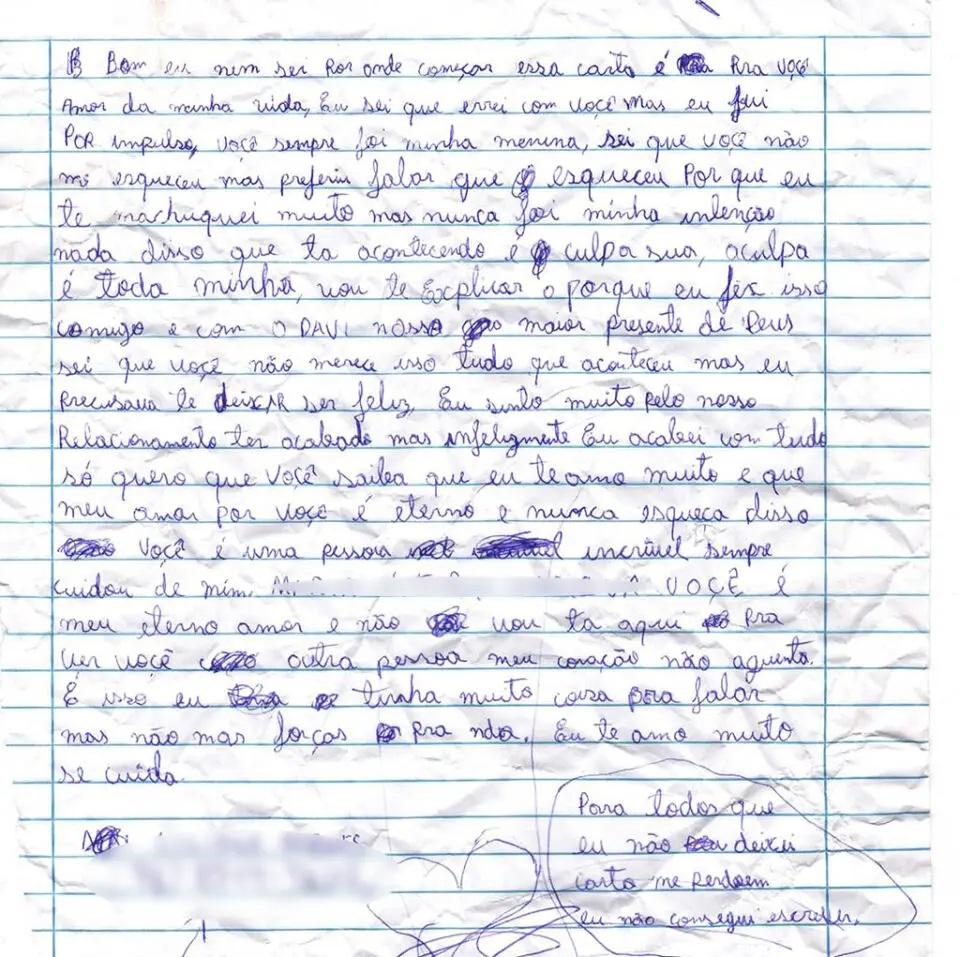 Bom eu nem sei por onde começar essa carta é pra você
Amor da minha vida, Eu sei que errei com você mas eu fui
Por impulso, você sempre foi minha menina, sei que você não
me esqueceu mas preferiu falar que esqueceu Por que eu
te machuquei muito mas nunca foi minha intenção
nada disso que ta acontecendo é culpa sua, aculpa
é toda minha, vou te Explicar o porque eu fix isso
comigo e com o DAVI nosso maior presente de Deus
sei que você não merece isso tudo que aconteceu mas eu
Precisava te deixar ser feliz, Eu sinto muito pelo nosso
Relacionamento ter acabado mas infelizmente Eu acabei com tudo
só quero que você saiba que eu te amo muito e que
meu amor por você é eterno e nunca esqueca disso
você é uma pessoa incrivel sempre
cuidou de mim. VOCÊ é
meu eterno amor e não vou ta aqui pra
ver você outra pessoa meu coração não aguenta.
É isso eu tinha muito coisa pra falar
mas não mas forças pra nda. Eu te amo muito
se cuida.
Para todos que
eu não deixei
carta me perdoem
eu não consegui escrever.